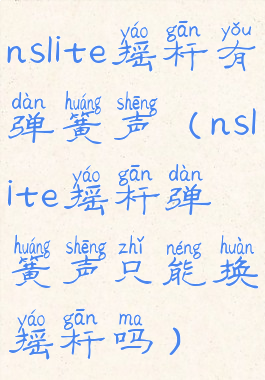 yáo gān yǒu
nslite摇杆有
dàn huáng shēng
弹簧声（nsl
yáo gān dàn
ite摇杆弹
huáng shēng zhǐ néng huàn
簧声只能换
yáo gān ma
摇杆吗）